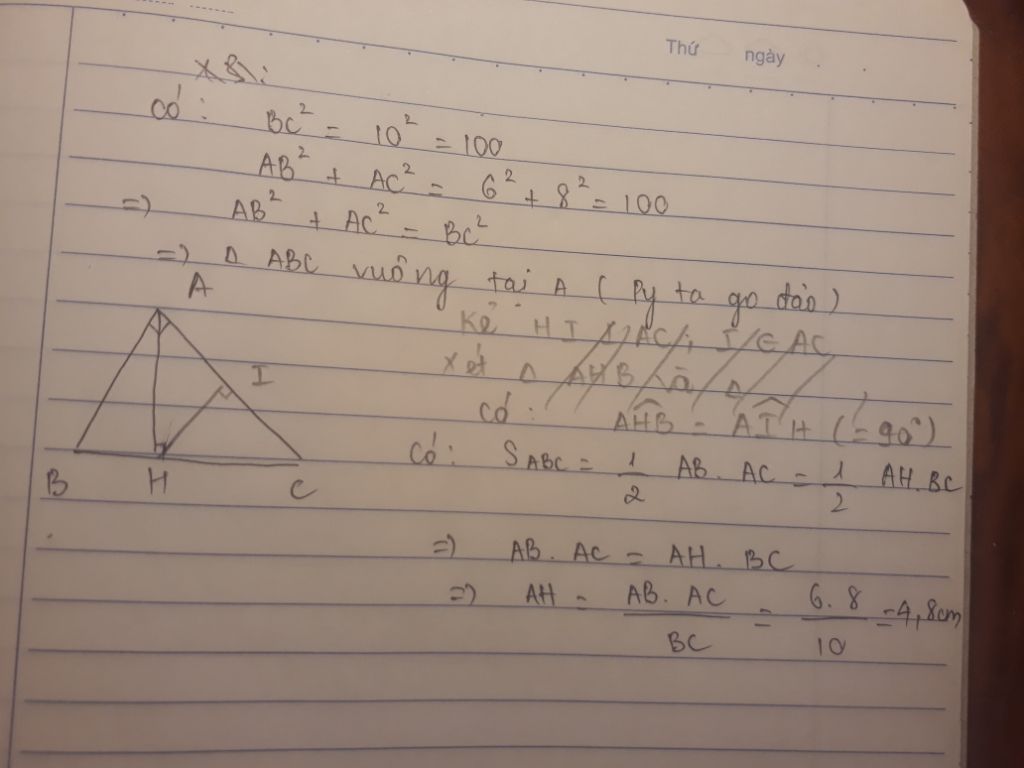 Thứ ngày
Có: BC² = 10² = 100
AB² + AC² = 6² + 8² = 100
=> AB² + AC² = BC²
=> Δ ABC vuông tại A (Py ta go đảo)
A
Kẻ HI AC; I ∈ AC
Xét Δ AHB và Δ
I
có: AHB = AIH (= 90°)
Có: S ABC = 1/2 AB. AC = 1/2 AH. BC
B H C
=> AB. AC = AH. BC
=> AH = AB. AC / BC = 6. 8 / 10 = 4,8cm